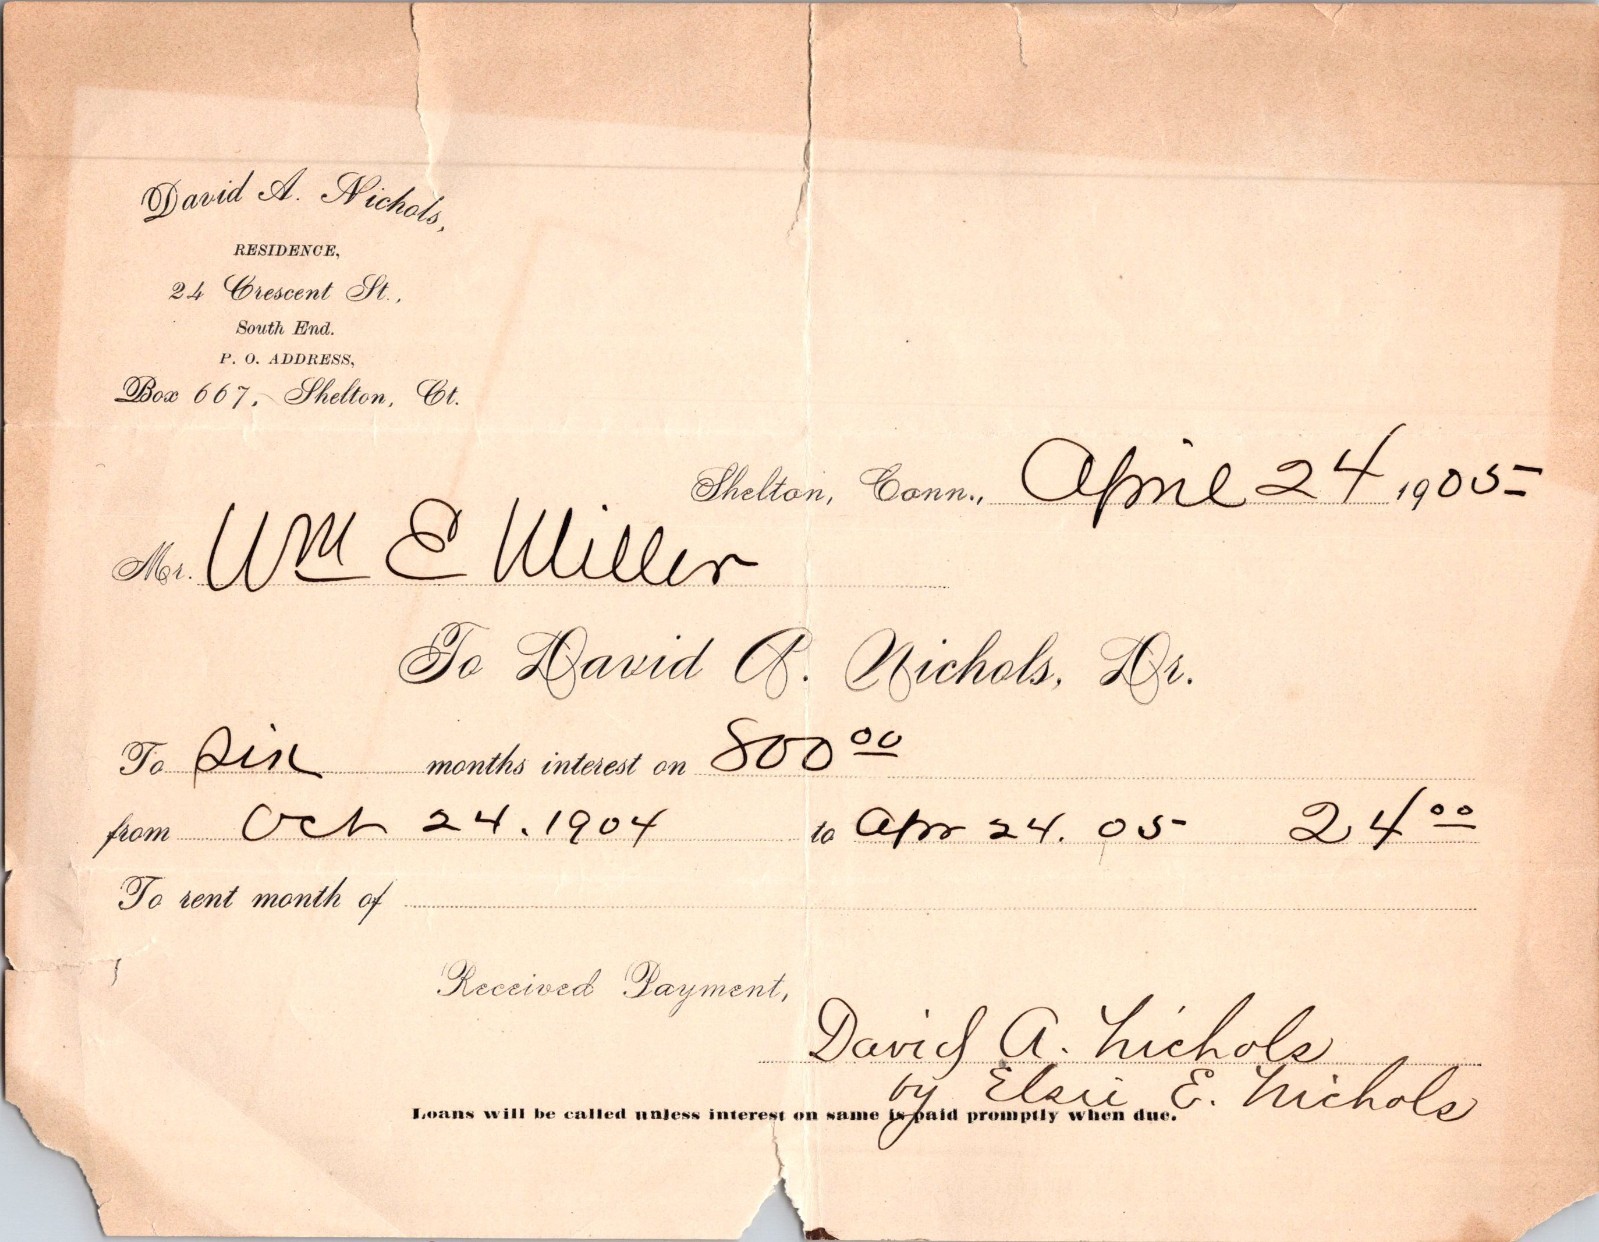 David A. Nichols,
RESIDENCE,
24 Crescent St.,
South End.
P. O. ADDRESS,
Box 667, Shelton, Ct.
Shelton, Conn., April 24 1905
Mr. Wm E Miller
To David A. Nichols, Dr.
To Six months interest on 800 00
from Oct 24. 1904 to Apr 24. 05 24 00
To rent month of
Received Payment,
David A. Nichols
by Elsie E. Nichols
Loans will be called unless interest on same is paid promptly when due.